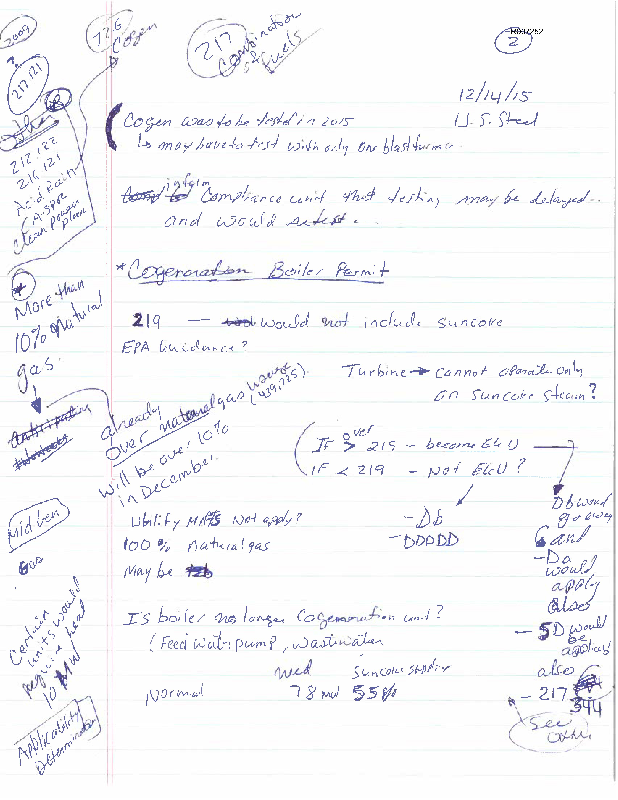 2009
726
Cogen
217
Combination
of fuels
R002252
2
217.121
12/14/15
U.S. Steel
Cogen was to be tested in 2015
↳ may have to test with only one blast furnace.
inform Compliance unit that testing may be delayed..
and would retest.
212.122
216.121
Acid Rain
CASPR
Clean Power
Plan
* Cogeneration Boiler Permit
*
More than
10% Natural
gas.
219 — would not include suncoke
EPA Guidance?
Turbine → cannot operate only
on Suncoke steam?
already
over natural gas usage
(439,725).
will be over 10%
in December.
over
If > 219 - become EGU
IF < 219 - Not EGU?
Utility MATS Not apply?
100% Natural gas
May be
- Db
- DDDDD
Db would
go away
and
- Da
would
apply
also
- 5D would
be
applied
also
- 217
344
See
over
Gas
Certain
units would
require heat
10 MW
Applicability
Determination
Is boiler no longer Cogeneration unit?
(Feed water pump, wastewater
Normal
78 MW 55%